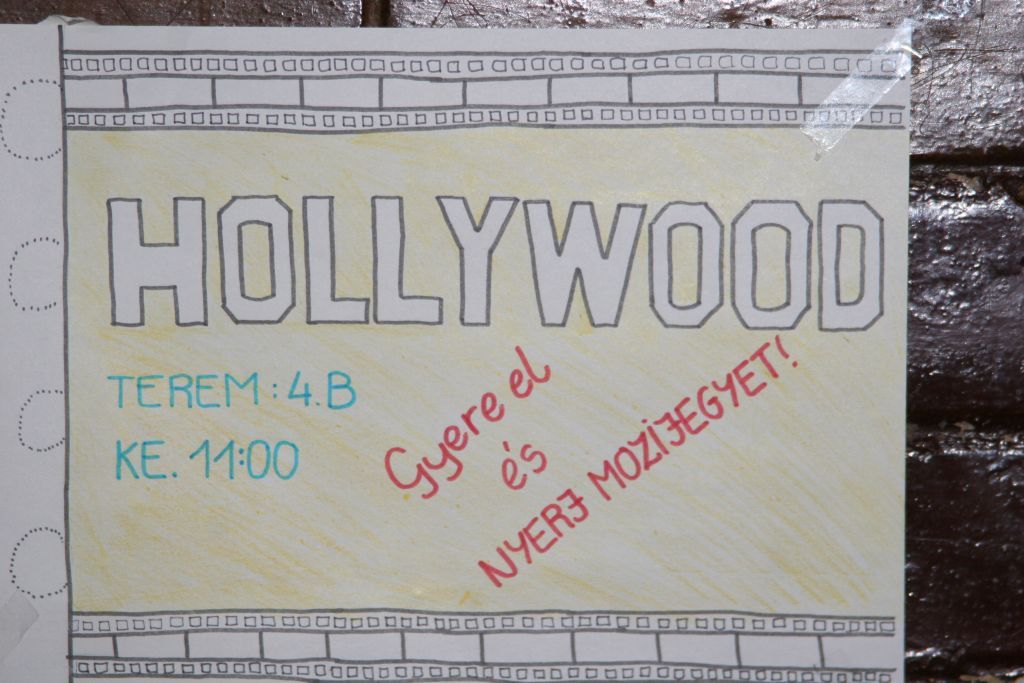 HOLLYWOOD
TEREM: 4.B
KE. 11:00
Gyere el
és
NYERJ MOZIJEGYET!